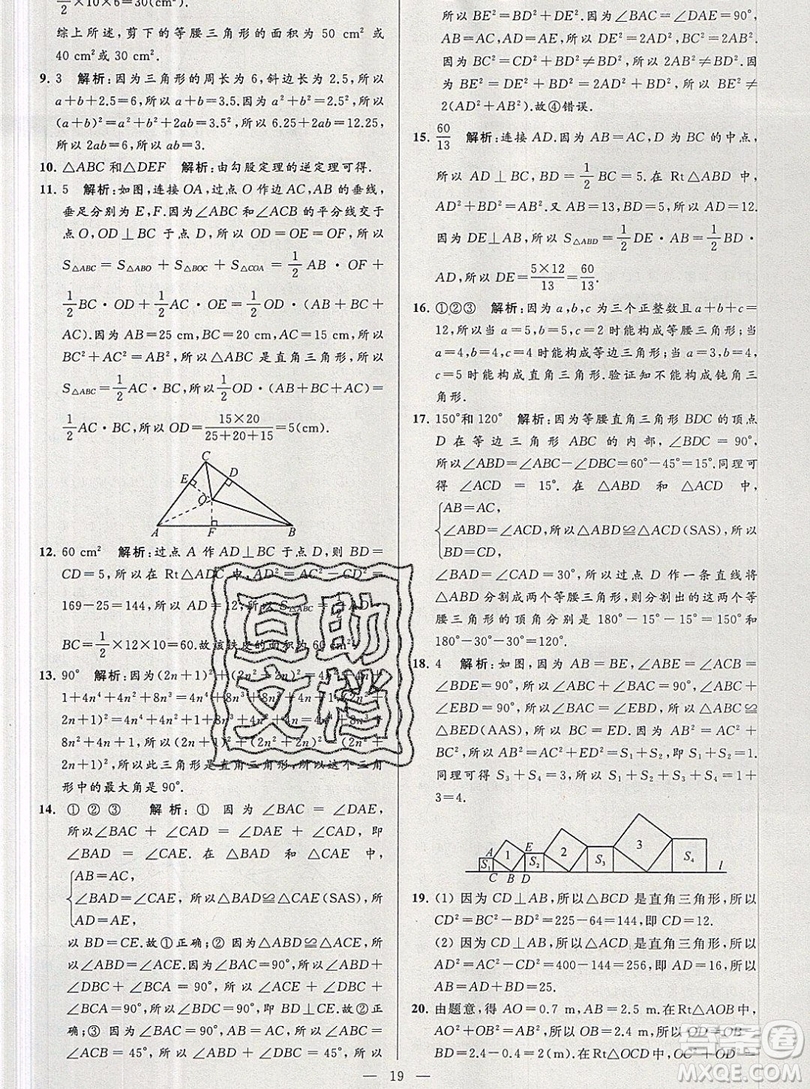 1/2×10×6=30(cm²).
综上所述，剪下的等腰三角形的面积为 50 cm² 或
40 cm² 或 30 cm².
9. 3 解析:因为三角形的周长为6,斜边长为2.5,所以
a+b+2.5=6,所以 a+b=3.5. 因为 a²+b²=2.5²,所以
(a+b)²=a²+b²+2ab,所以 6.25+2ab=12.25,
所以 2ab=6,所以 ab=3.
10. △ABC 和△DEF 解析:由勾股定理的逆定理可得.
11. 5 解析:如图,连接 OA,过点 O 作边 AC,AB 的垂线,
垂足分别为 E,F. 因为∠ABC 和∠ACB 的平分线交于
点 O,OD⊥BC 于点 D,所以 OD=OE=OF,所以
S△ABC=S△ABO+S△BOC+S△COA=1/2 AB·OF+
1/2 BC·OD+1/2 AC·OE=1/2 OD·(AB+BC+
AC). 因为 AB=25 cm,BC=20 cm,AC=15 cm,所以
BC²+AC²=AB²,所以△ABC 是直角三角形,所以
S△ABC=1/2 AC·BC,所以 1/2 OD·(AB+BC+AC)=
1/2 AC·BC,所以 OD=15×20/25+20+15=5(cm).
C
E
D
O
A
F
B
12. 60 cm² 解析:过点 A 作 AD⊥BC 于点 D,则 BD=
CD=5,所以在 Rt△ADC 中,AD²=AC²-CD²=
169-25=144,所以 AD=12,所以 S△ABC=
BC=1/2×12×10=60.故该铁皮的面积为 60 cm².
13. 90° 解析:因为(2n+1)²+(2n²+2n)²=4n²+4n+
1+4n⁴+4n²+8n³=4n⁴+8n³+8n²+4n+1,(2n²+
2n+1)²=4n⁴+8n³+8n²+4n+1,4n⁴+8n³+
8n²+4n+1,所以(2n+1)²+(2n²+2n)²=(2n²+
2n+1)²,所以此三角形是直角三角形,所以这个三角
形中的最大角是 90°.
14. ① ② ③ 解析:① 因为∠BAC=∠DAE,
所以∠BAC+∠CAD=∠DAE+∠CAD,即
∠BAD=∠CAE. 在△ABD 和△ACE 中,
AB=AC,
∠BAD=∠CAE,所以△ABD≌△ACE(SAS),所
AD=AE,
以 BD=CE.故①正确;② 因为△ABD≌△ACE,所
以∠ABD=∠ACE. 因为∠ABD+∠DBC=
∠ABC=45°,所以∠ACE+∠DBC=45°.故②正
确;③ 因为△ABC 是等腰直角三角形,所以∠ABC=
∠ACB=45°,所以∠ABC+∠ACB=90°,所以
所以 BE²=BD²+DE². 因为∠BAC=∠DAE=90°,
AB=AC,AD=AE,所以 DE²=2AD²,BC²=2AB².
因为 BC²≠BD²,所以 2AB²≠BD²,所以 BE²≠
2(AD²+AB²).故④错误.
15. 60/13 解析:连接 AD.因为 AB=AC,D 为 BC 的中点,
所以 AD⊥BC,BD=1/2 BC=5. 在 Rt△ABD 中,
AD²+BD²=AB²,所以 AD²=13²-5²,所以 AD=12.
因为 DE⊥AB,所以 S△ABD=1/2 DE·AB=1/2 BD·
AD,所以 DE=5×12/13=60/13.
16. ①②③ 解析:因为 a,b,c 为三个正整数且 a+b+c=
12,所以当 a=2,b=5,c=5 时能构成等腰三角形;当
a=4,b=4,c=4 时能构成等边三角形;当 a=3,b=
4,c=5时能构成直角三角形.验证知不能构成钝角三
角形.
17. 150°和 120° 解析:因为等腰直角三角形 BDC 的顶点
D 在等边三角形 ABC 的内部,∠BDC=90°,所以
∠ABD=∠ABC-∠DBC=60°-45°=15°.同理可
得∠ACD=15°.在△ABD 和△ACD 中,
AB=AC,
∠ABD=∠ACD,所以△ABD≌△ACD(SAS),所以
BD=CD,
∠BAD=∠CAD=30°,所以过点 D 作一条直线将
△ABD 分割成两个等腰三角形,则分割出的这两个等
腰三角形的顶角分别是 180°-15°-15°=150°和
180°-30°-30°=120°.
18. 4 解析:如图,因为 AB=BE,∠ABE=∠ACB=
∠BDE=90°,所以∠ABC+∠BAC=90°,∠ABC+
∠EBD=90°,所以∠BAC=∠EBD,所以△ABC≌
△BED(AAS),所以 BC=ED. 因为 AB²=AC²+
BC²,所以 AB²=AC²+ED²=S₁+S₂,即 S₁+S₂=1.
同理可得 S₃+S₄=3.所以 S₁+S₂+S₃+S₄=1
+3=4.
A
E
S₁
1
S₂
2
S₃
3
S₄
l
C B D
19. (1) 因为 CD⊥AB,所以△BCD 是直角三角形,所以
CD²=BC²-BD²=225-64=144,所以 CD=12.
(2) 因为 CD⊥AB,所以△ACD 是直角三角形,所以
AD²=AC²-CD²=400-144=256,所以 AD=16,所以
AB=AD+BD=25.
20. 由题意,得 AO=0.7 m,AB=2.5 m,在 Rt△AOB 中,
AO²+OB²=AB²,所以 OB=2.4 m.所以 OD=OB-
BD=2.4-0.4=2(m). 在 Rt△OCD 中,OC²+OD²=
— 19 —
互助
文档
答案圈
MXQE.COM